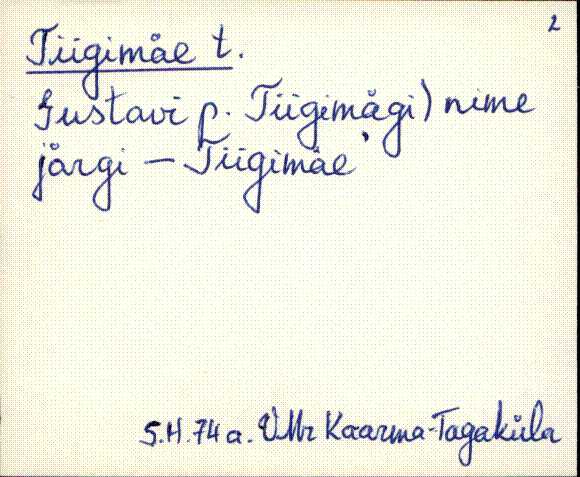 2
Tiigimäe t.
Gustavi p. Tiigimägi) nime
järgi – Tiigimäe'
S.H. 74 a. VMr Kaarma-Tagaküla